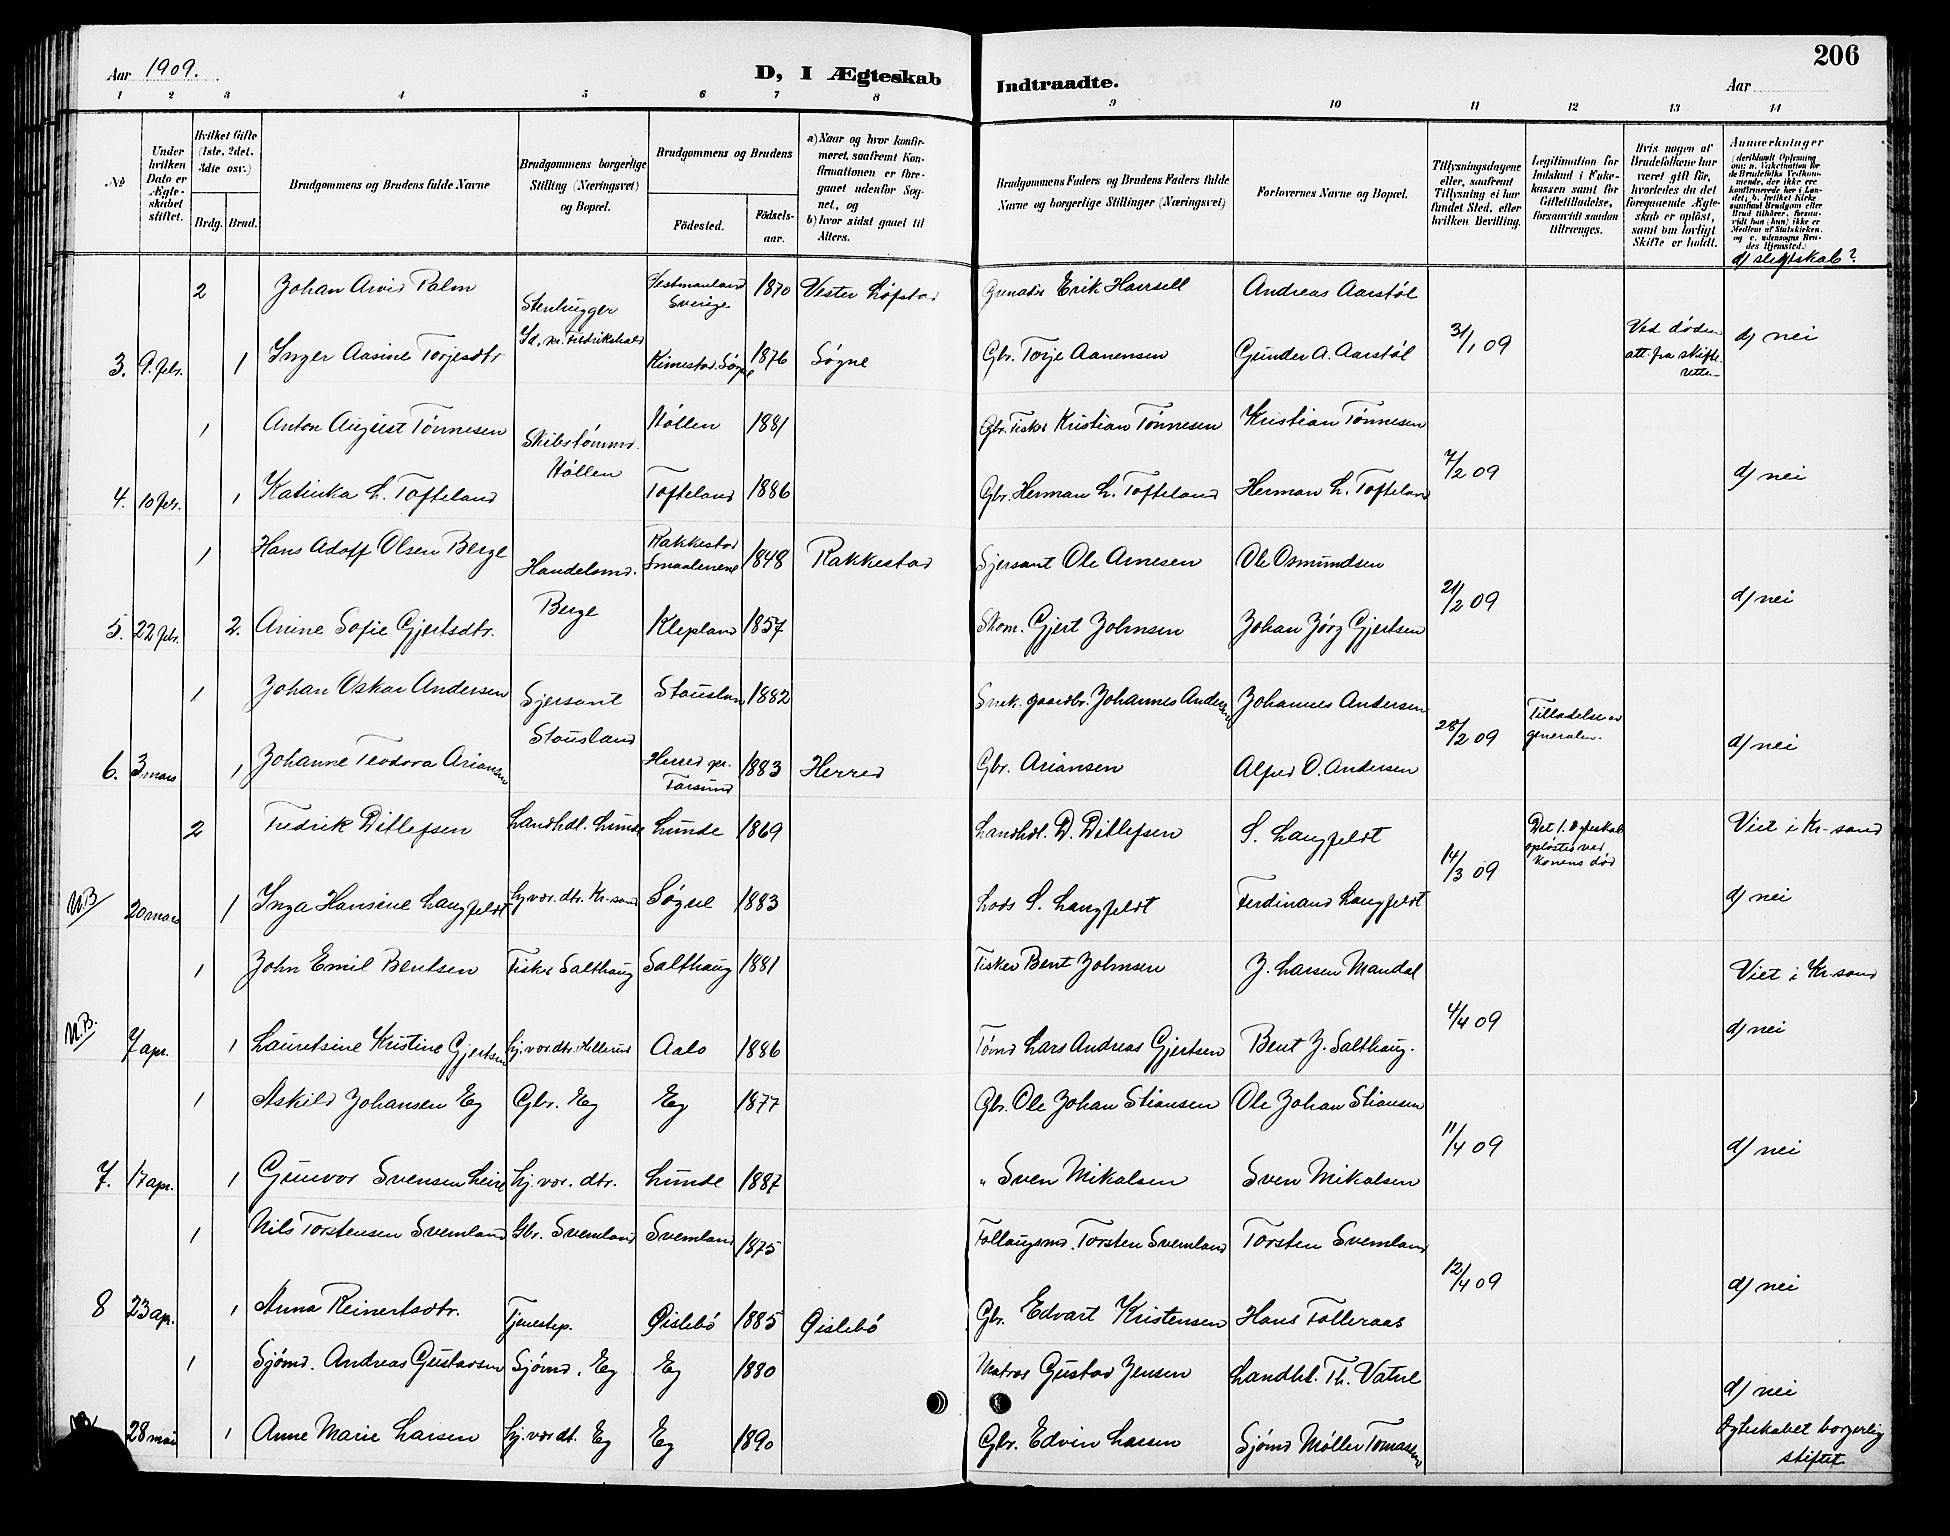 206
Aar 1909.
D, I Ægteskab
Indtraadte.
Aar
1 2 3 4 5 6 7 8 9 10 11 12 13 14
No
Under hvilken Dato er Ægteskabet stiftet.
Hvilket Gifte (1ste, 2det, 3die osv.)
Brdg. Brud.
Brudgommens og Brudens fulde Navne
Brudgommens borgerlige Stilling (Næringsvei) og Bopæl.
Brudgommens og Brudens
Fødested.
Fødselsaar.
a) Naar og hvor konfirmeret, saafremt Konfirmationen er foregaaet udenfor Sognet, og
b) hvor sidst gaaet til Alters.
Brudgommens Faders og Brudens Faders fulde Navne og borgerlige Stillinger (Næringsvei)
Forlovernes Navne og Bopæl.
Tillysningsdagene eller, saafremt Tillysning ei har fundet Sted, efter hvilken Bevilling.
Legitimation for Indskud i Enkekassen samt for Giftetilladelse, forsaavidt saadan tiltrænges.
Hvis nogen af Brudefolkene har været gift før, hvorledes da det foregaaende Ægteskab er opløst, samt om lovligt Skifte er holdt.
Anmerkninger
d) slegtskab?
2 Johan Arvid Palm Stenhugger Vestmanland Sverige 1870 Vester Løfstad Grenader Erik Andreas Aarstøl
3. 9. febr. 1 Inger Aasine Torjesdtr Id, nr. Fredrikshald Kimestad. Søgne 1876 Søgne Gbr. Torje Aanensen Gunder A. Aarstøl 3/1 09 Ved døden att. fra skifteretten d) nei
1 Anton August Tønnesen Skibstømmrd. Høllen 1881 Gbr. Fisker Kristian Tønnesen Kristian Tønnesen
4. 10 febr. 1 Katinka L. Tofteland Høllen Tofteland 1886 Gbr. Herman L. Tofteland Herman L. Tofteland 7/2 09 d) nei
1 Hans Adolf Olsen Berge Handelsmd. Rakkestad Smaalenene 1848 Rakkestad Sjersant Ole Arnesen Ole Osmundsen
5. 22 febr. 2. Anine Sofie Gjertsdtr. Berge Klepland 1857 Skom. Gjert Johnsen Johan Jørg Gjertsen 21/2 09 d) nei
1 Johan Oskar Andersen Sjersant Stousland 1882 Snek. gaardbr. Johannes Andersen Johannes Andersen
6. 3 mars 1 Johanne Teodora Ariansen Stousland Herred pr. Farsund 1883 Herred Gbr. Ariansen Alfred O. Andersen 28/2 09 Tilladelse av generalen. d) nei
2 Fredrik Ditlefsen Landhdl. Lunde Lunde 1869 Landhdl. D. Ditlefsen S. Langfeldt Det 1. egteskab opløstes ved konens død Viet i Kr-sand
N.B 20 mars 1 Inga Hansine Langfeldt hj.vær. dtr. Kr-sand Søgne 1883 Lods S. Langfeldt Ferdinand Langfeldt 14/3 09 d) nei
1 John Emil Bentsen Fisker Salthaug Salthaug 1881 Fisker Bent Johnsen J. Larsen Mandal Viet i Kr-sand
N.B. 7 apr. 1 Lauretsine Kristine Gjertsen hj. vær dtr. Hellerud Aalo 1886 Tømd Lars Andreas Gjertsen Bent J. Salthaug. 4/4 09 d) nei
1 Askild Johansen Eg Gbr. Eg Eg 1877 Gbr. Ole Johan Stiansen Ole Johan Stiansen
7. 17 apr. 1 Gunvor Svensen Leire hj. vær. dtr. Lunde 1887 " Sven Mikalsen Sven Mikalsen 11/4 09 d) nei
1 Nils Torstensen Svemland Gbr. Svemland Svemland 1875 Follaugsmd. Torsten Svemland Torsten Svemland
8 23 ap. 1 Anna Reinertsdtr. Tjenestep. Øislebø 1885 Øislebø Gbr. Edvart Kristensen Hans Folleraas 12/4 09 d) nei
1 Sjømd. Andreas Gustavsen Sjømd. Eg Eg 1880 Matros Gustav Jensen Landhl. Th. Vatne
28 mai 1 Anne Marie Larsen hj. vær dt. Eg Eg 1890 Gbr. Edvin Larsen Sjømd Møller Tomassen d) nei Egteskabet borgerlig stiftet